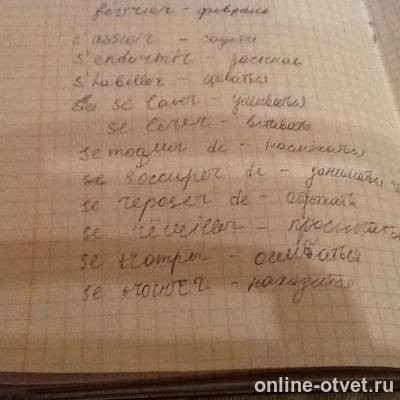 février - февраль
s'assoir - садится
s'endormir - засыпать
s'habiller - одеваться
se laver - умываться
se lever - вставать
se moquer de - насмехаться
se s'occuper de - заниматься
se reposer de - отдыхать
se réveiller - просыпаться
se tromper - ошибаться
se trouver - находится
online-otvet.ru